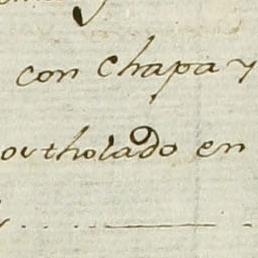 con chapa y
ortholado en